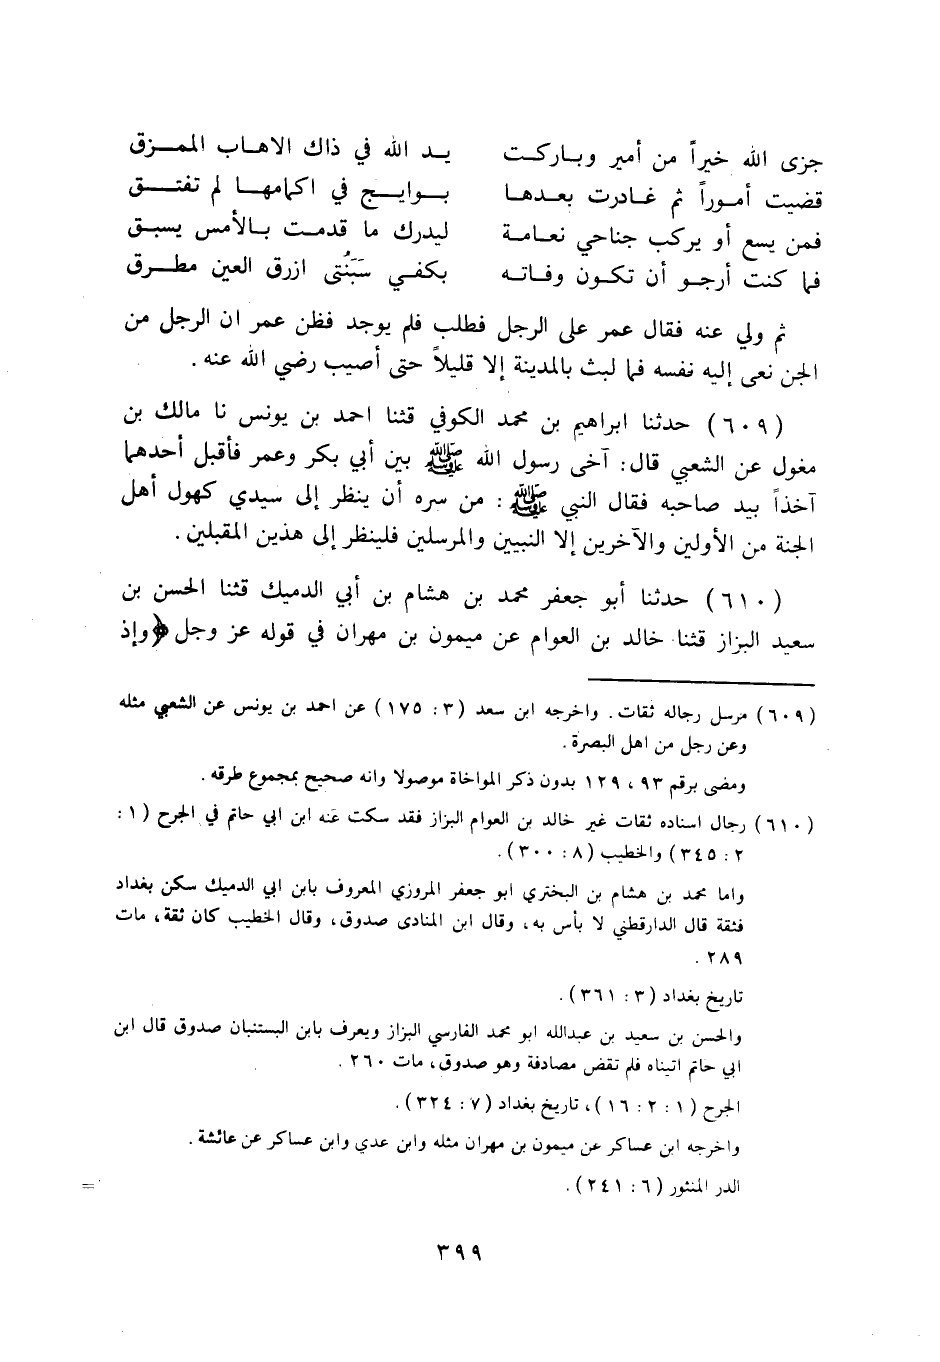 جزى الله خيراً من أمير وباركت يد الله في ذاك الاهاب الممزق
قضيت أموراً ثم غادرت بعدها بوايج في اكمامها لم تفتق
فمن يسع أو يركب جناحي نعامة ليدرك ما قدمت بالأمس يسبق
فما كنت أرجو أن تكون وفاته بكفي سَبَنْتُى ازرق العين مطرق
ثم ولي عنه فقال عمر علي الرجل فطلب فلم يوجد فظن عمر ان الرجل من
الجن نعى إليه نفسه فما لبث بالمدينة إلا قليلاً حتى أصيب رضي الله عنه .
(٦٠٩) حدثنا ابراهيم بن محمد الكوفي قثنا احمد بن يونس نا مالك بن
مغول عن الشعبي قال : آخى رسول الله ﷺ بين أبي بكر وعمر فأقبل أحدهما
آخذاً بيد صاحبه فقال النبي ﷺ : من سره أن ينظر إلى سيدي كهول أهل
الجنة من الأولين والآخرين إلا النبيين والمرسلين فلينظر إلى هذين المقبلين .
(٦١٠) حدثنا أبو جعفر محمد بن هشام بن أبي الدميك قثنا الحسن بن
سعيد البزاز قثنا خالد بن العوام عن ميمون بن مهران في قوله عز وجل ﴿وإذ
(٦٠٩) مرسل رجاله ثقات . واخرجه ابن سعد (٣ : ١٧٥) عن احمد بن يونس عن الشعبي مثله
وعن رجل من اهل البصرة .
ومضى برقم ٩٣ ، ١٢٩ بدون ذكر المواخاة موصولا وانه صحيح بمجموع طرقه .
(٦١٠) رجال اسناده ثقات غير خالد بن العوام البزاز فقد سكت عنه ابن ابي حاتم في الجرح (١ :
٢ : ٣٤٥) والخطيب (٨ : ٣٠٠) .
واما محمد بن هشام بن البختري ابو جعفر المروزي المعروف بابن ابي الدميك سكن بغداد
فثقة قال الدارقطني لا بأس به ، وقال ابن المنادى صدوق ، وقال الخطيب كان ثقة ، مات
٢٨٩ .
تاريخ بغداد (٣ : ٣٦١) .
والحسن بن سعيد بن عبدالله ابو محمد الفارسي البزاز ويعرف بابن البستنبان صدوق قال ابن
ابي حاتم اتيناه فلم تقض مصادفة وهو صدوق ، مات ٢٦٠ .
الجرح (١ : ٢ : ١٦) ، تاريخ بغداد (٧ : ٣٢٤) .
واخرجه ابن عساكر عن ميمون بن مهران مثله وابن عدي وابن عساكر عن عائشة .
الدر المنثور (٦ : ٢٤١) . =
٣٩٩